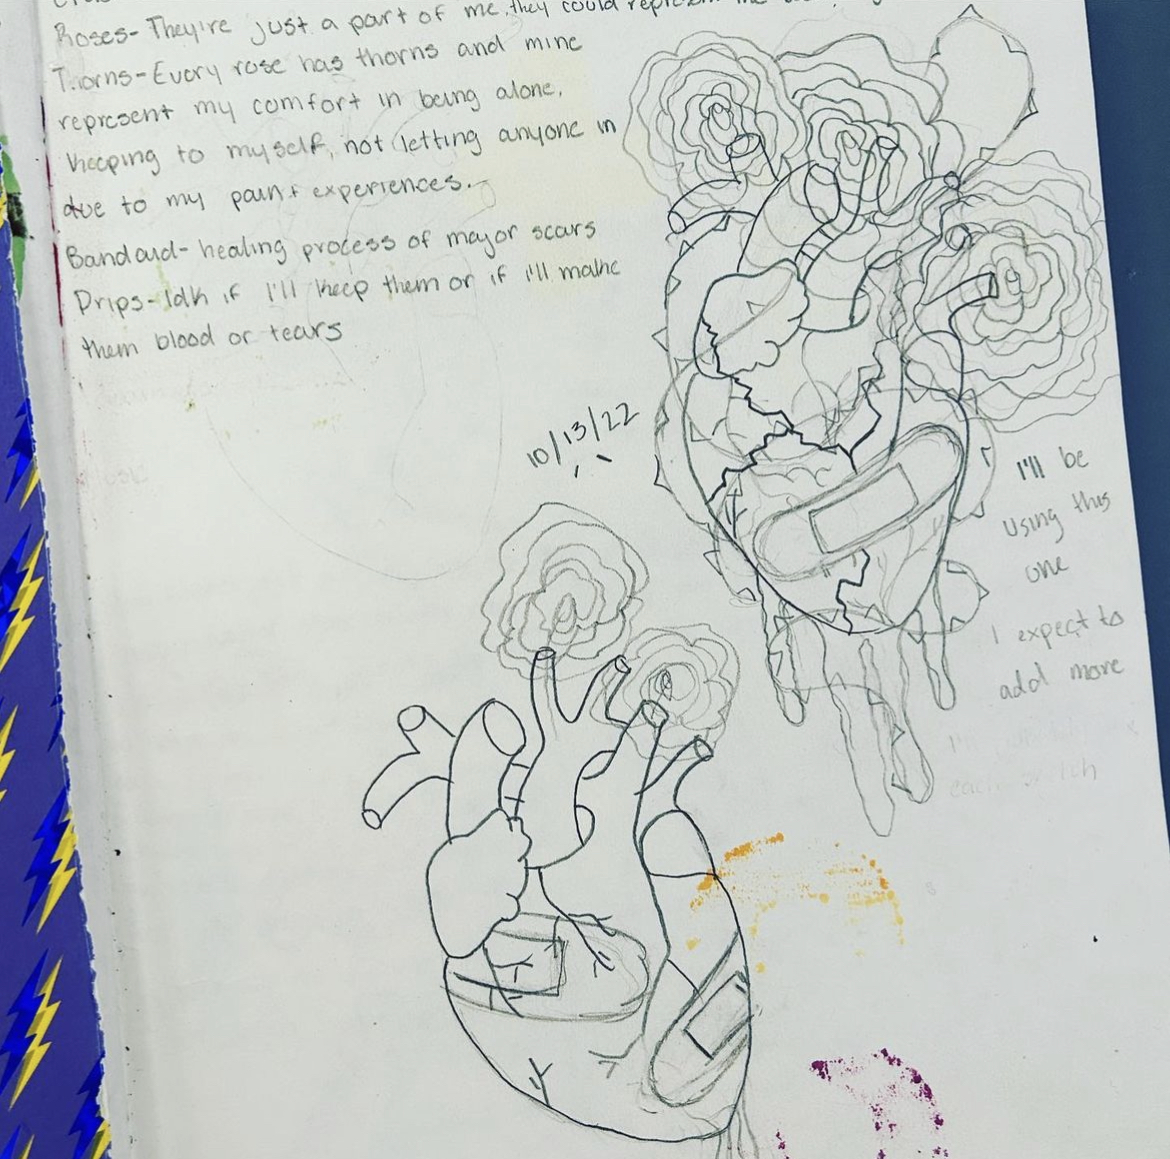 Roses- They're just a part of me, they could represent the
Thorns- Every rose has thorns and mine
represent my comfort in being alone,
keeping to myself, not letting anyone in
due to my pain + experiences.
Bandaid- healing process of major scars
Drips- Idk if I'll keep them or if I'll make
them blood or tears
10/13/22
I'll be
using this
one
I expect to
add more
I'll
each sketch